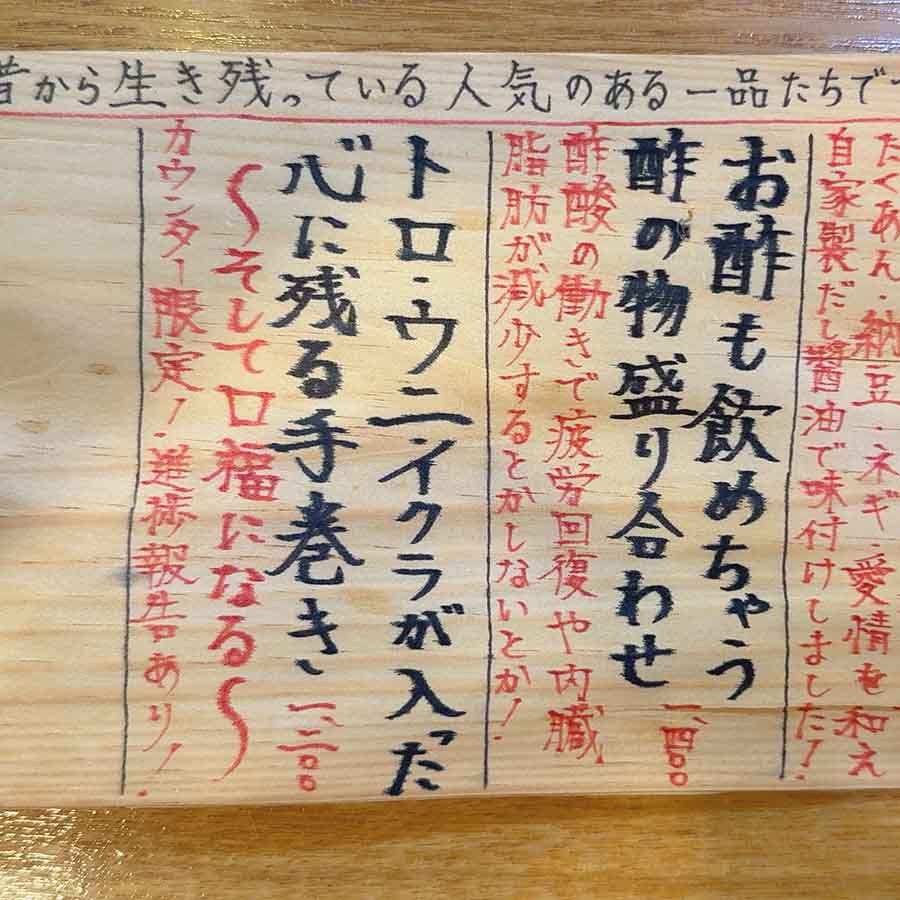 昔から生き残っている人気のある一品たちで
たくあん・納豆・ネギ・愛情を和え
自家製だし醤油で味付けしました!
お酢も飲めちゃう
酢の物盛り合わせ
一、四〇〇
酢酸の働きで疲労回復や内臓
脂肪が減少するとかしないとか!
トロ・ウニ・イクラが入った
心に残る手巻き
一、二〇〇
〜そして口福になる〜
カウンター限定!進捗報告あり!